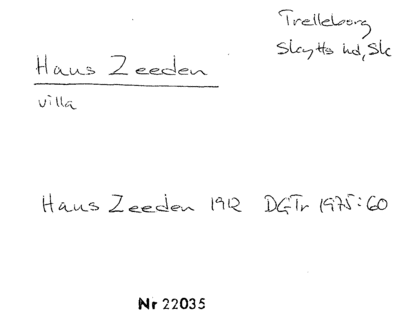 Trelleborg
Skytts hd, Sk
Haus Zeeden
villa
Haus Zeeden 1912 DGTr 1975:60
Nr 22035